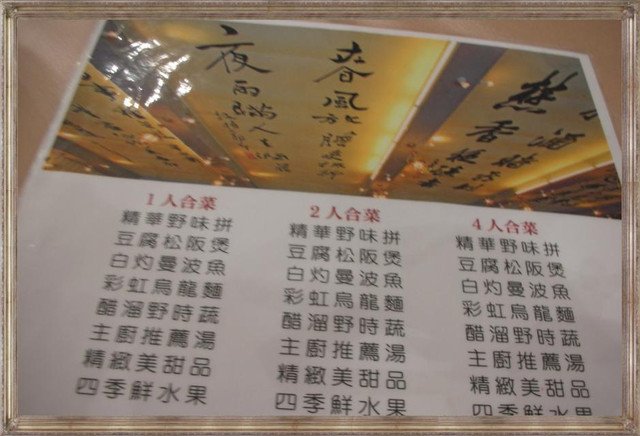 夜
春風
1人合菜
精華野味拼
豆腐松阪煲
白灼曼波魚
彩虹烏龍麵
醋溜野時蔬
主廚推薦湯
精緻美甜品
四季鮮水果
2人合菜
精華野味拼
豆腐松阪煲
白灼曼波魚
彩虹烏龍麵
醋溜野時蔬
主廚推薦湯
精緻美甜品
四季鮮水果
4人合菜
精華野味拼
豆腐松阪煲
白灼曼波魚
彩虹烏龍麵
醋溜野時蔬
主廚推薦湯
精緻美甜品
四季鮮水果